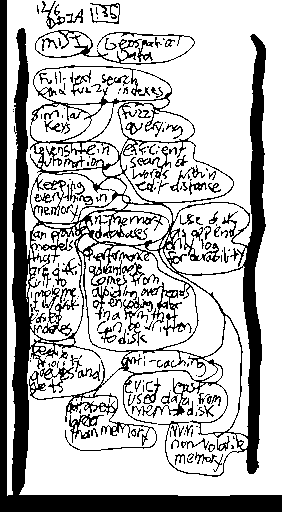 12/6
DDIA 135
MIDI Geospatial
Data
Full-text search
and fuzzy indexes
Similar
Keys
Fuzzy
querying
Levenshtein
automation
Efficient
search of
words within
edit distance
Keeping
everything in
memory
In-memory
databases
Use disk
as append
only log
for durability
Can provide
models
that
are diffi
cult to
implement
w/
indexes
Performance
advantage
comes from
avoiding overheads
of encoding data
in a form that
can be written
to disk
Redis
priority
queues and
sets
Anti-caching
evict least
used data from
mem → disk
datasets
larger
than memory
NVM
non-volatile
memory